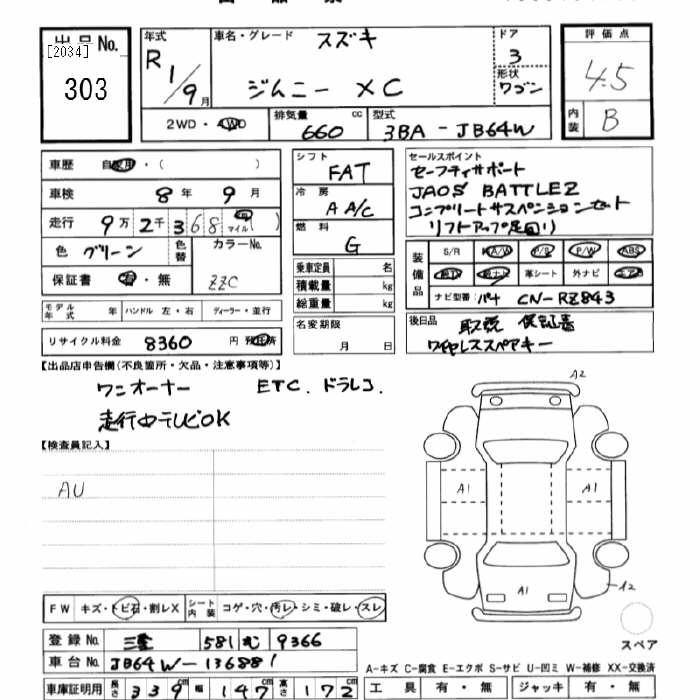 出品No.
[2034]
303
年式
R 1/9月
車名・グレード
スズキ
ジムニー XC
ドア
3
形状
ワゴン
評価点
4.5
内装
B
2WD・4WD
排気量
660 cc
型式
3BA-JB64W
車歴 自家用・( )
車検 8年 9月
走行 9万2千368 マイル( )
色 グリーン
色替
カラーNo.
ZZC
保証書 有・無
モデル年式 年 ハンドル 左・右 ディーラー・並行
リサイクル料金 8360円 預託済
シフト
FAT
冷房
AA/C
燃料
G
乗車定員 名
積載量 kg
総重量 kg
名変期限
月 日
セールスポイント
セーフティサポート
JAOS BATTLEZ
コンプリートサスペンションセット
リフトアップ足回り
装備品
S/R A/W P/S P/W ABS
革シート 外ナビ
ナビ型番 パナ CN-RZ843
後日品 取説 保証書
ワイヤレススペアキー
【出品店申告欄(不良箇所・欠品・注意事項等)】
ワンオーナー ETC.ドラレコ.
走行中テレビOK
【検査員記入】
AU
A2
A1
A1
A1
A2
スペア
FW キズ・トビ石・割レX シート内装 コゲ・穴・汚レ・シミ・破レ・スレ
登録No. 三重 581 む 9366
車台No. JB64W-136881
車庫証明用 長さ 339cm 幅 147cm 高さ 172cm
A-キズ C-腐食 E-エクボ S-サビ U-凹ミ W-補修 XX-交換済
工具 有・無 ジャッキ 有・無